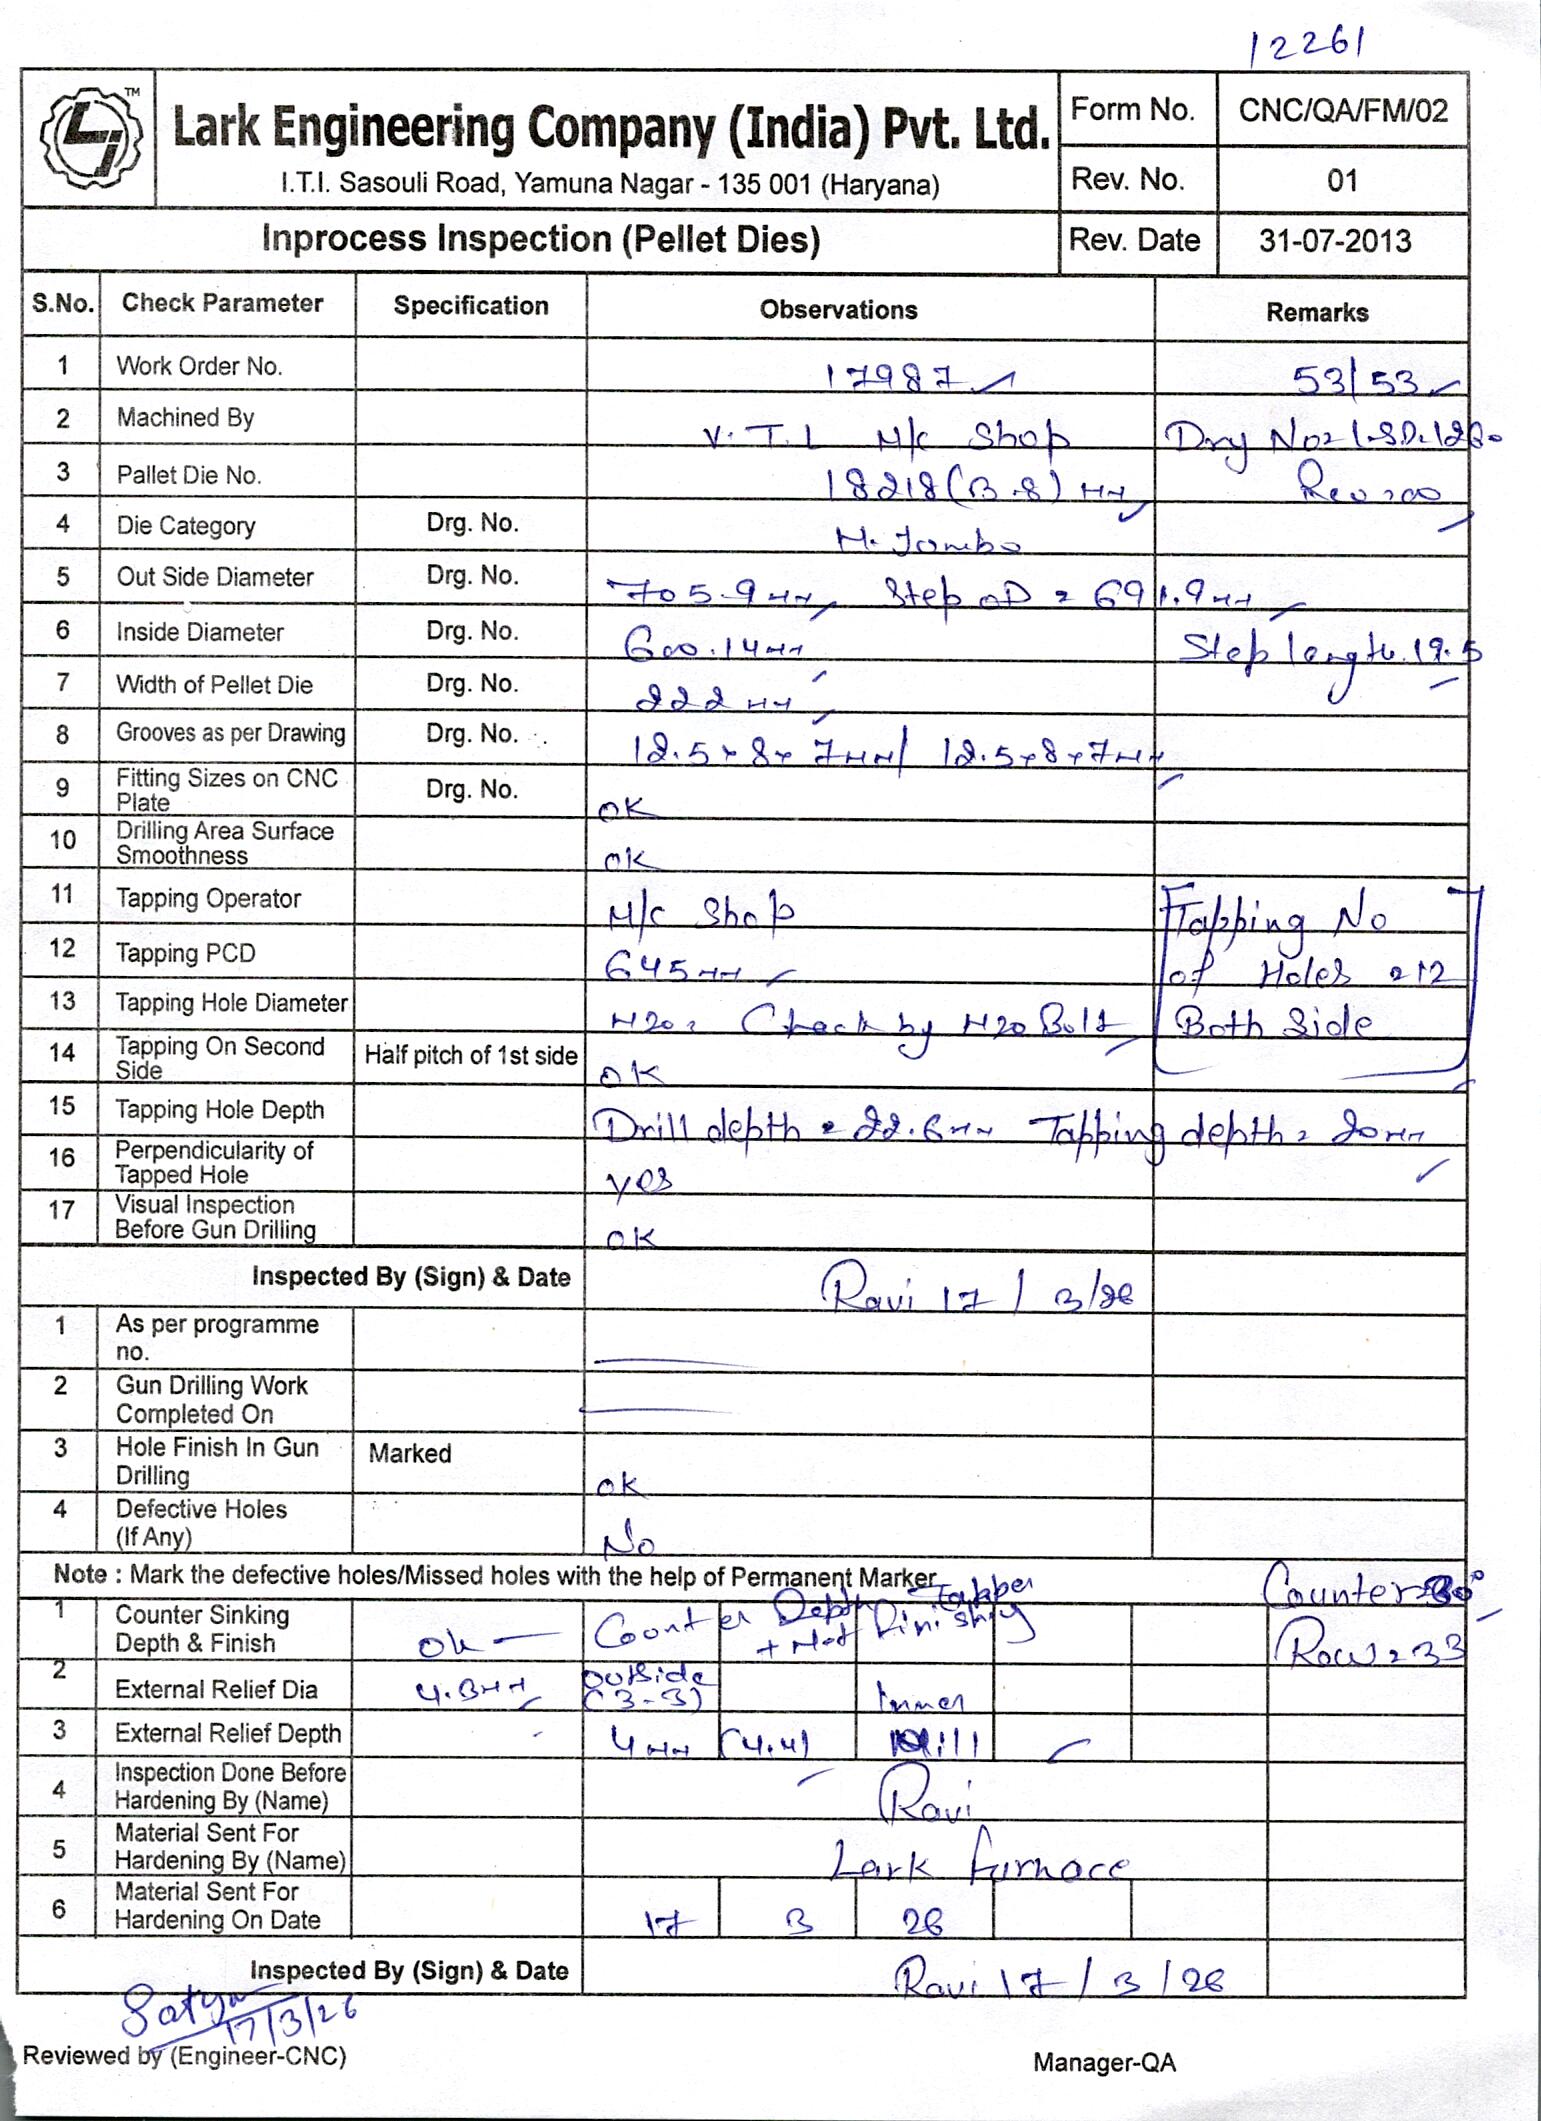 12261
TM
Lark Engineering Company (India) Pvt. Ltd.
I.T.I. Sasouli Road, Yamuna Nagar - 135 001 (Haryana)
Form No. CNC/QA/FM/02
Rev. No. 01
Inprocess Inspection (Pellet Dies)
Rev. Date 31-07-2013
S.No. Check Parameter Specification Observations Remarks
1 Work Order No. 17987 53/53
2 Machined By V.T.L M/c Shop
3 Pallet Die No. 18218(B-8)
4 Die Category Drg. No. M. Jombo
5 Out Side Diameter Drg. No. 705.9mm Step OD = 691.9mm
6 Inside Diameter Drg. No. 600.14mm Step length. 19.5
7 Width of Pellet Die Drg. No. 222mm
8 Grooves as per Drawing Drg. No. 12.5x8x7mm/ 12.5x8x7mm
9 Fitting Sizes on CNC Plate Drg. No. OK
10 Drilling Area Surface Smoothness OK
11 Tapping Operator M/c Shop Tapping No
12 Tapping PCD 645mm of Holes = 12
13 Tapping Hole Diameter M20 = Check by M20 Bolt Both Side
14 Tapping On Second Side Half pitch of 1st side OK
15 Tapping Hole Depth Drill depth = 22.6mm Tapping depth = 20mm
16 Perpendicularity of Tapped Hole yes
17 Visual Inspection Before Gun Drilling OK
Inspected By (Sign) & Date Ravi 17/3/26
1 As per programme no.
2 Gun Drilling Work Completed On
3 Hole Finish In Gun Drilling Marked OK
4 Defective Holes (If Any) No
Note : Mark the defective holes/Missed holes with the help of Permanent Marker
1 Counter Sinking Depth & Finish ok Counter Depth Row = 33
2 External Relief Dia 4.3mm outside (3-3) Inner
3 External Relief Depth 4mm (4.4)
4 Inspection Done Before Hardening By (Name) Ravi
5 Material Sent For Hardening By (Name) Lark furnace
6 Material Sent For Hardening On Date 17 3 26
Inspected By (Sign) & Date Ravi 17/3/26
Satya
17/3/26
Reviewed by (Engineer-CNC) Manager-QA